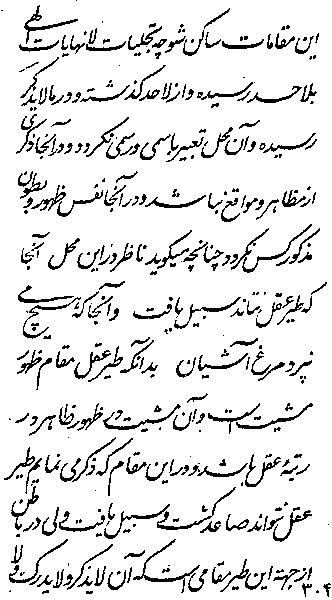 این مقامات ساکن شو چه تجلیات لا نهایات الهی
بلا حد رسیده و از لا حد گذشته و در ما لا یذکر
رسیده و آن محل تعبیر باسمی و رسمی نگردد و در آنجا ذکری
از مظاهر و مواقع نباشد و در آنجا نفس ظهور و بطون
مذکور کس نگردد چنانچه میگوید ناظر در این محل آنجا
که طیر عقل نتاند سبیل یافت و آنجا که هیچ می
نپرد مرغ آشیان بدانکه طیر عقل مقام ظهور
مشیت است و آن مشیت در ظهور ظاهر در
رتبهٔ عقل باشد و در این مقام که ذکر می نمایم طیر
عقل نتواند صاعد گشت و سبیل یافت ولی در باطن
از جهته این طیر مقامی است که آن لا یذکر و لا یدرک و لا
۳۰۴